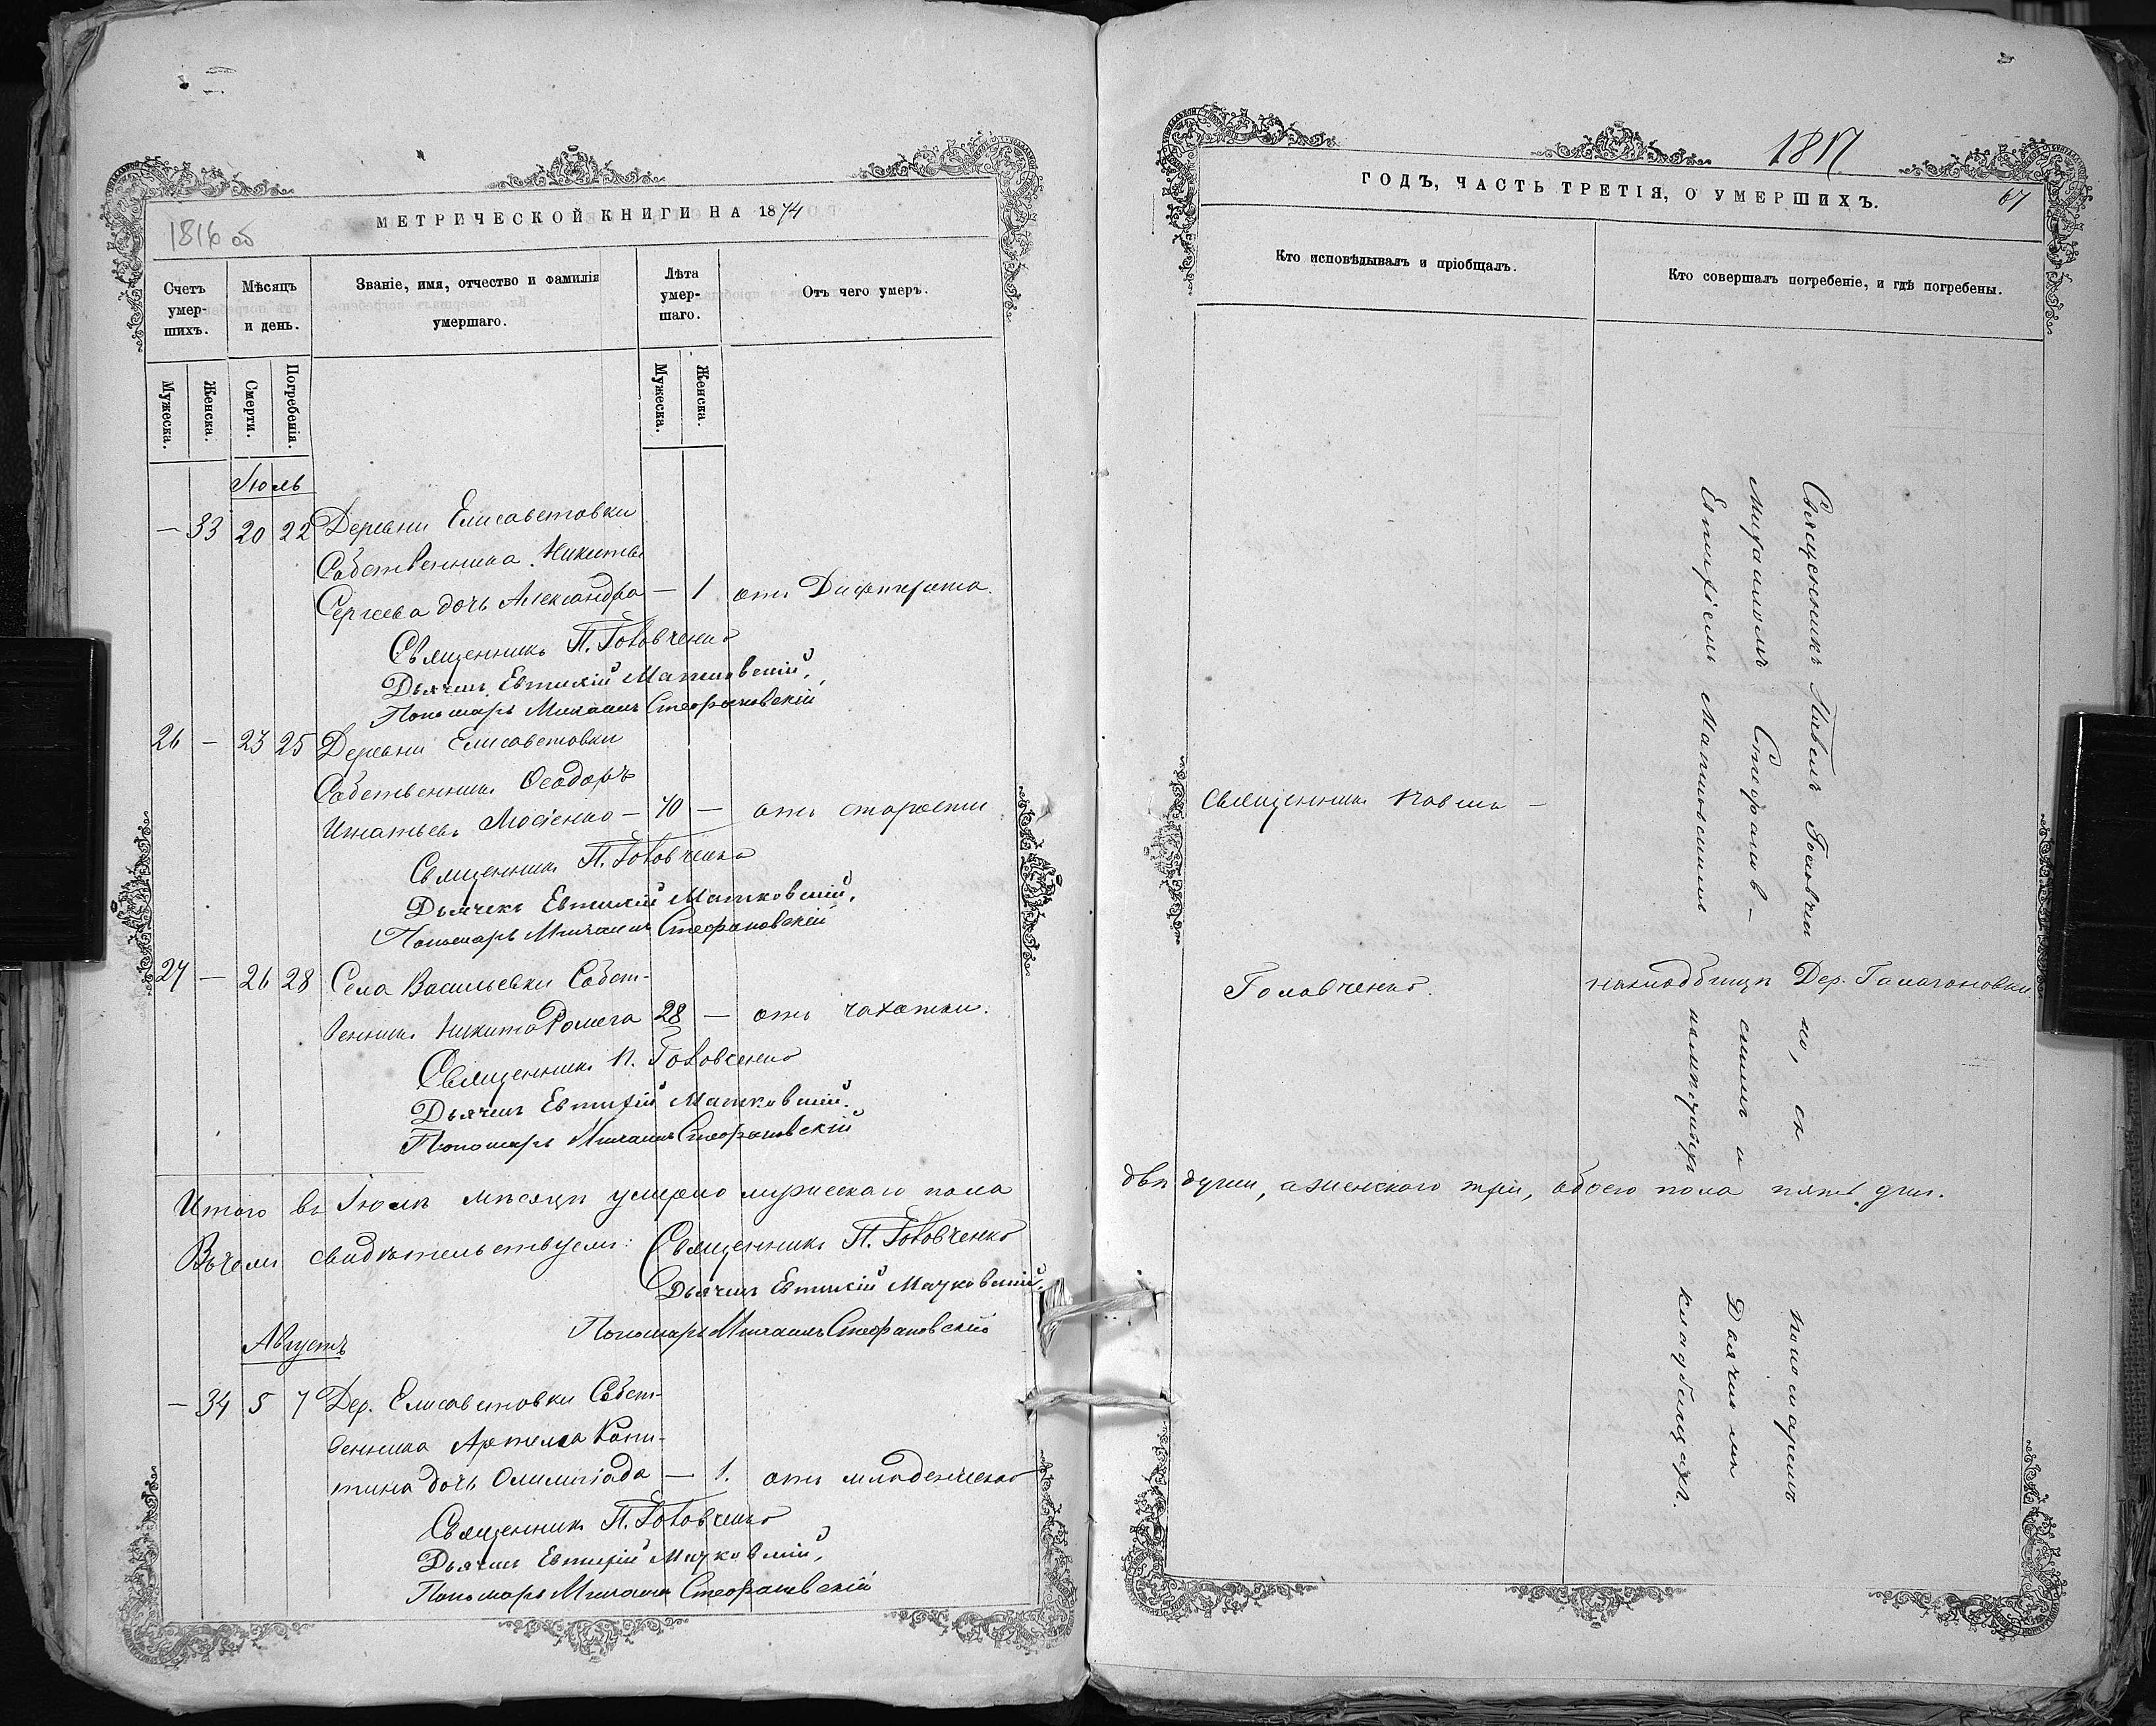 1816 об
МЕТРИЧЕСКОЙ КНИГИ НА 1874
Счетъ умер-шихъ.
Мѣсяцъ и день.
Званіе, имя, отчество и фамилія умершаго.
Лѣта умер-шаго.
Отъ чего умеръ.
Мужеска.
Женска.
Смерти.
Погребенія.
Мужеска.
Женска.
Іюль
— 33 20 22 Деревни Елисаветовки
Собственника Никиты
Сергеева дочь Александра — 1 отъ Дифтерита.
Священникъ П. Головченко
Дьячекъ Евтихій Матковскій,
Пономарь Михаилъ Стефановскій
26 — 23 25 Деревни Елисаветовки
Собственникъ Ѳеодоръ
Игнатьевъ Мосіенко — 70 — отъ старости
Священникъ П. Головченко
Дьячекъ Евтихій Матковскій,
Пономарь Михаилъ Стефановскій
27 — 26 28 Села Васильевки Собст-
венникъ Никита 28 — отъ чахотки.
Священникъ П. Головченко
Дьячекъ Евтихій Матковскій.
Пономарь Михаилъ Стефановскій
Итого въ Іюлѣ мѣсяцѣ умерло мужескаго пола
Въ чемъ свидѣтельствуемъ: Священникъ П. Головченко
Дьячекъ Евтихій Матковскій,
Пономарь Михаилъ Стефановскій
Августъ
— 34 5 7 Дер. Елисаветовки Собст-
венника Артема
дочь Олимпіада — 1. отъ младенческо
Священникъ П. Головченко
Дьячекъ Евтихій Матковскій,
Пономарь Михаилъ Стефановскій
1817
67
ГОДЪ, ЧАСТЬ ТРЕТІЯ, О УМЕРШИХЪ.
Кто исповѣдывалъ и пріобщалъ.
Кто совершалъ погребеніе, и гдѣ погребены.
Священникъ Павелъ —
Головченко.
Священникъ Павелъ Головчен
ко, съ
пономаремъ
Михаиломъ Стефанов —
скимъ и
Дьячкомъ
Евтихіемъ Матковскимъ
кладбищахъ.
на кладбищѣ Дер. Галагановки.
двѣ души, а женскаго три, обоего пола пять душ.